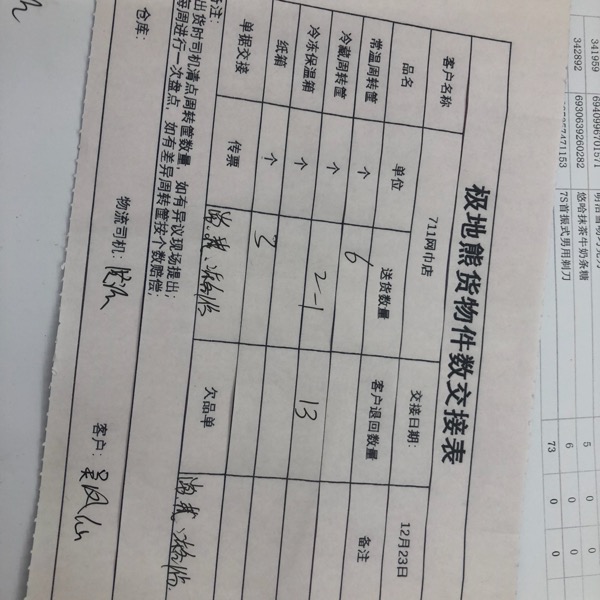 极地熊货物件数交接表
客户名称 711网巾店 交接日期: 12月23日
品名 单位 送货数量 客户退回数量 备注
常温周转筐 个 6
冷藏周转筐 个
冷冻保温箱 个 2-1 13
纸箱 个 3
单据交接 传票 欠品单
备注:
出货时司机清点周转筐数量,如有异议现场提出;
每周进行一次盘点,如有差异周转筐按个数赔偿;
仓库: 物流司机: 客户:
341959 6940996701571
342892 6930639260282 悠哈抹茶牛奶条糖 5 0 0
7471153 7S首振式男用剃刀 6 0 0
73 0 0